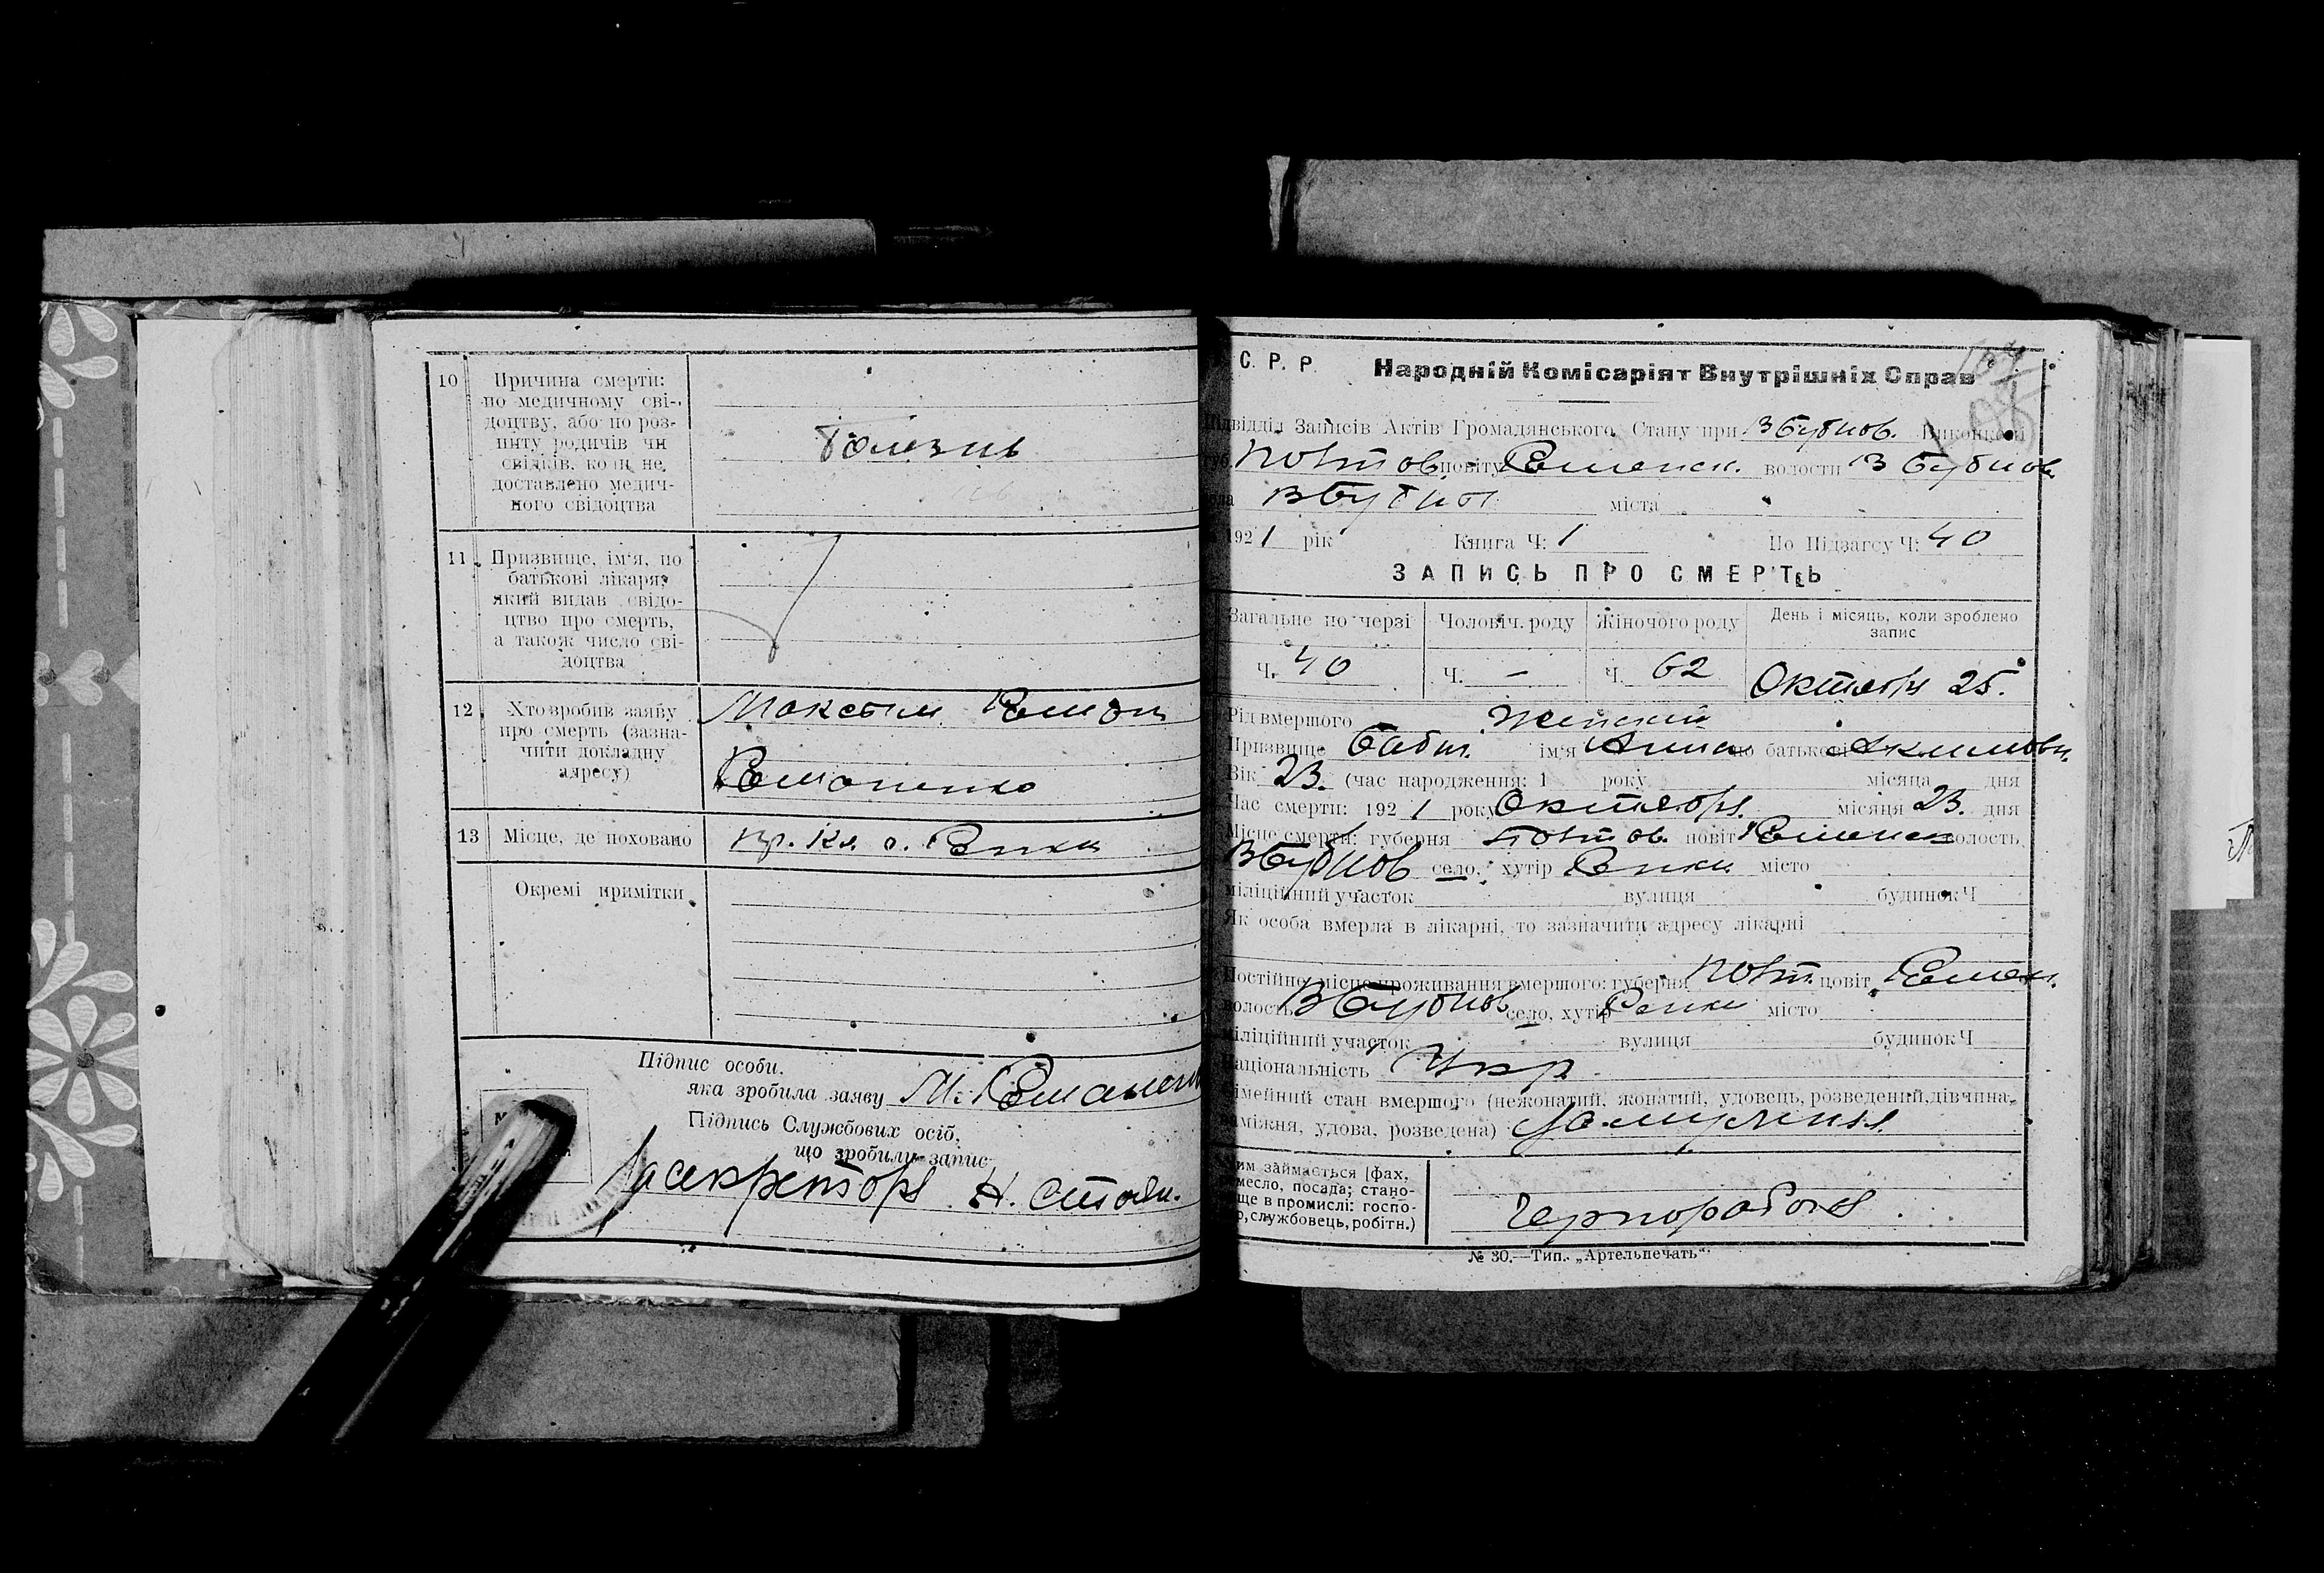 10 Причина смерти:
по медичному сві-
доцтву, або по роз-
питу родичів чи
свідків, коли не
доставлено медич-
ного свідоцтва
болезнь
11 Призвище, ім'я, по
батькові лікаря,
який видав свідо-
цтво про смерть,
а також число сві-
доцтва
12 Хто зробив заяву
про смерть (зазна-
чити докладну
адресу)
Романенко
13 Місце, де поховано
Окремі примітки
Підпис особи,
яка зробила заяву
Підпись Службових осіб,
що зробили запис
С. Р. Р. Народній Комісаріят Внутрішніх Справ
Підвідділ Записів Актів Громадянського Стану при В Бубнов. Виконкомі
Полтов. повіту Роменск. волости В Бубнов
міста
1921 рік Книга Ч: 1 По Підзагсу Ч: 40
ЗАПИСЬ ПРО СМЕРТЬ
Загальне по черзі Чоловіч. роду Жіночого роду День і місяць, коли зроблено
запис
Ч. 40 Ч. – Ч. 62 Октябрь 25.
Рід вмершого Женский
Призвище ім'я Анна по батькові Акимовн.
Вік 23. (час народження: 1 року місяця дня
Час смерти: 1921 року Октября. місяця 23. дня
Місце смерти: губерня Полтов. повіт Роменск волость
В Бубнов село, хутір місто
міліційний участок вулиця будинок Ч
Як особа вмерла в лікарні, то зазначити адресу лікарні
Постійне місце проживання вмершого: губерня Полт. повіт Ромен.
волость В Бубнов село, хутір місто
міліційний участок вулиця будинок Ч
Національність Укр.
Сімейний стан вмершого (нежонатий, жонатий, удовець, розведений, дівчина,
заміжня, удова, розведена)
Чим займається [фах,
ремесло, посада; стано-
вище в промислі: госпо-
дар, службовець, робітн.)
Чернорабоч
№ 30.—Тип. „Артельпечать“